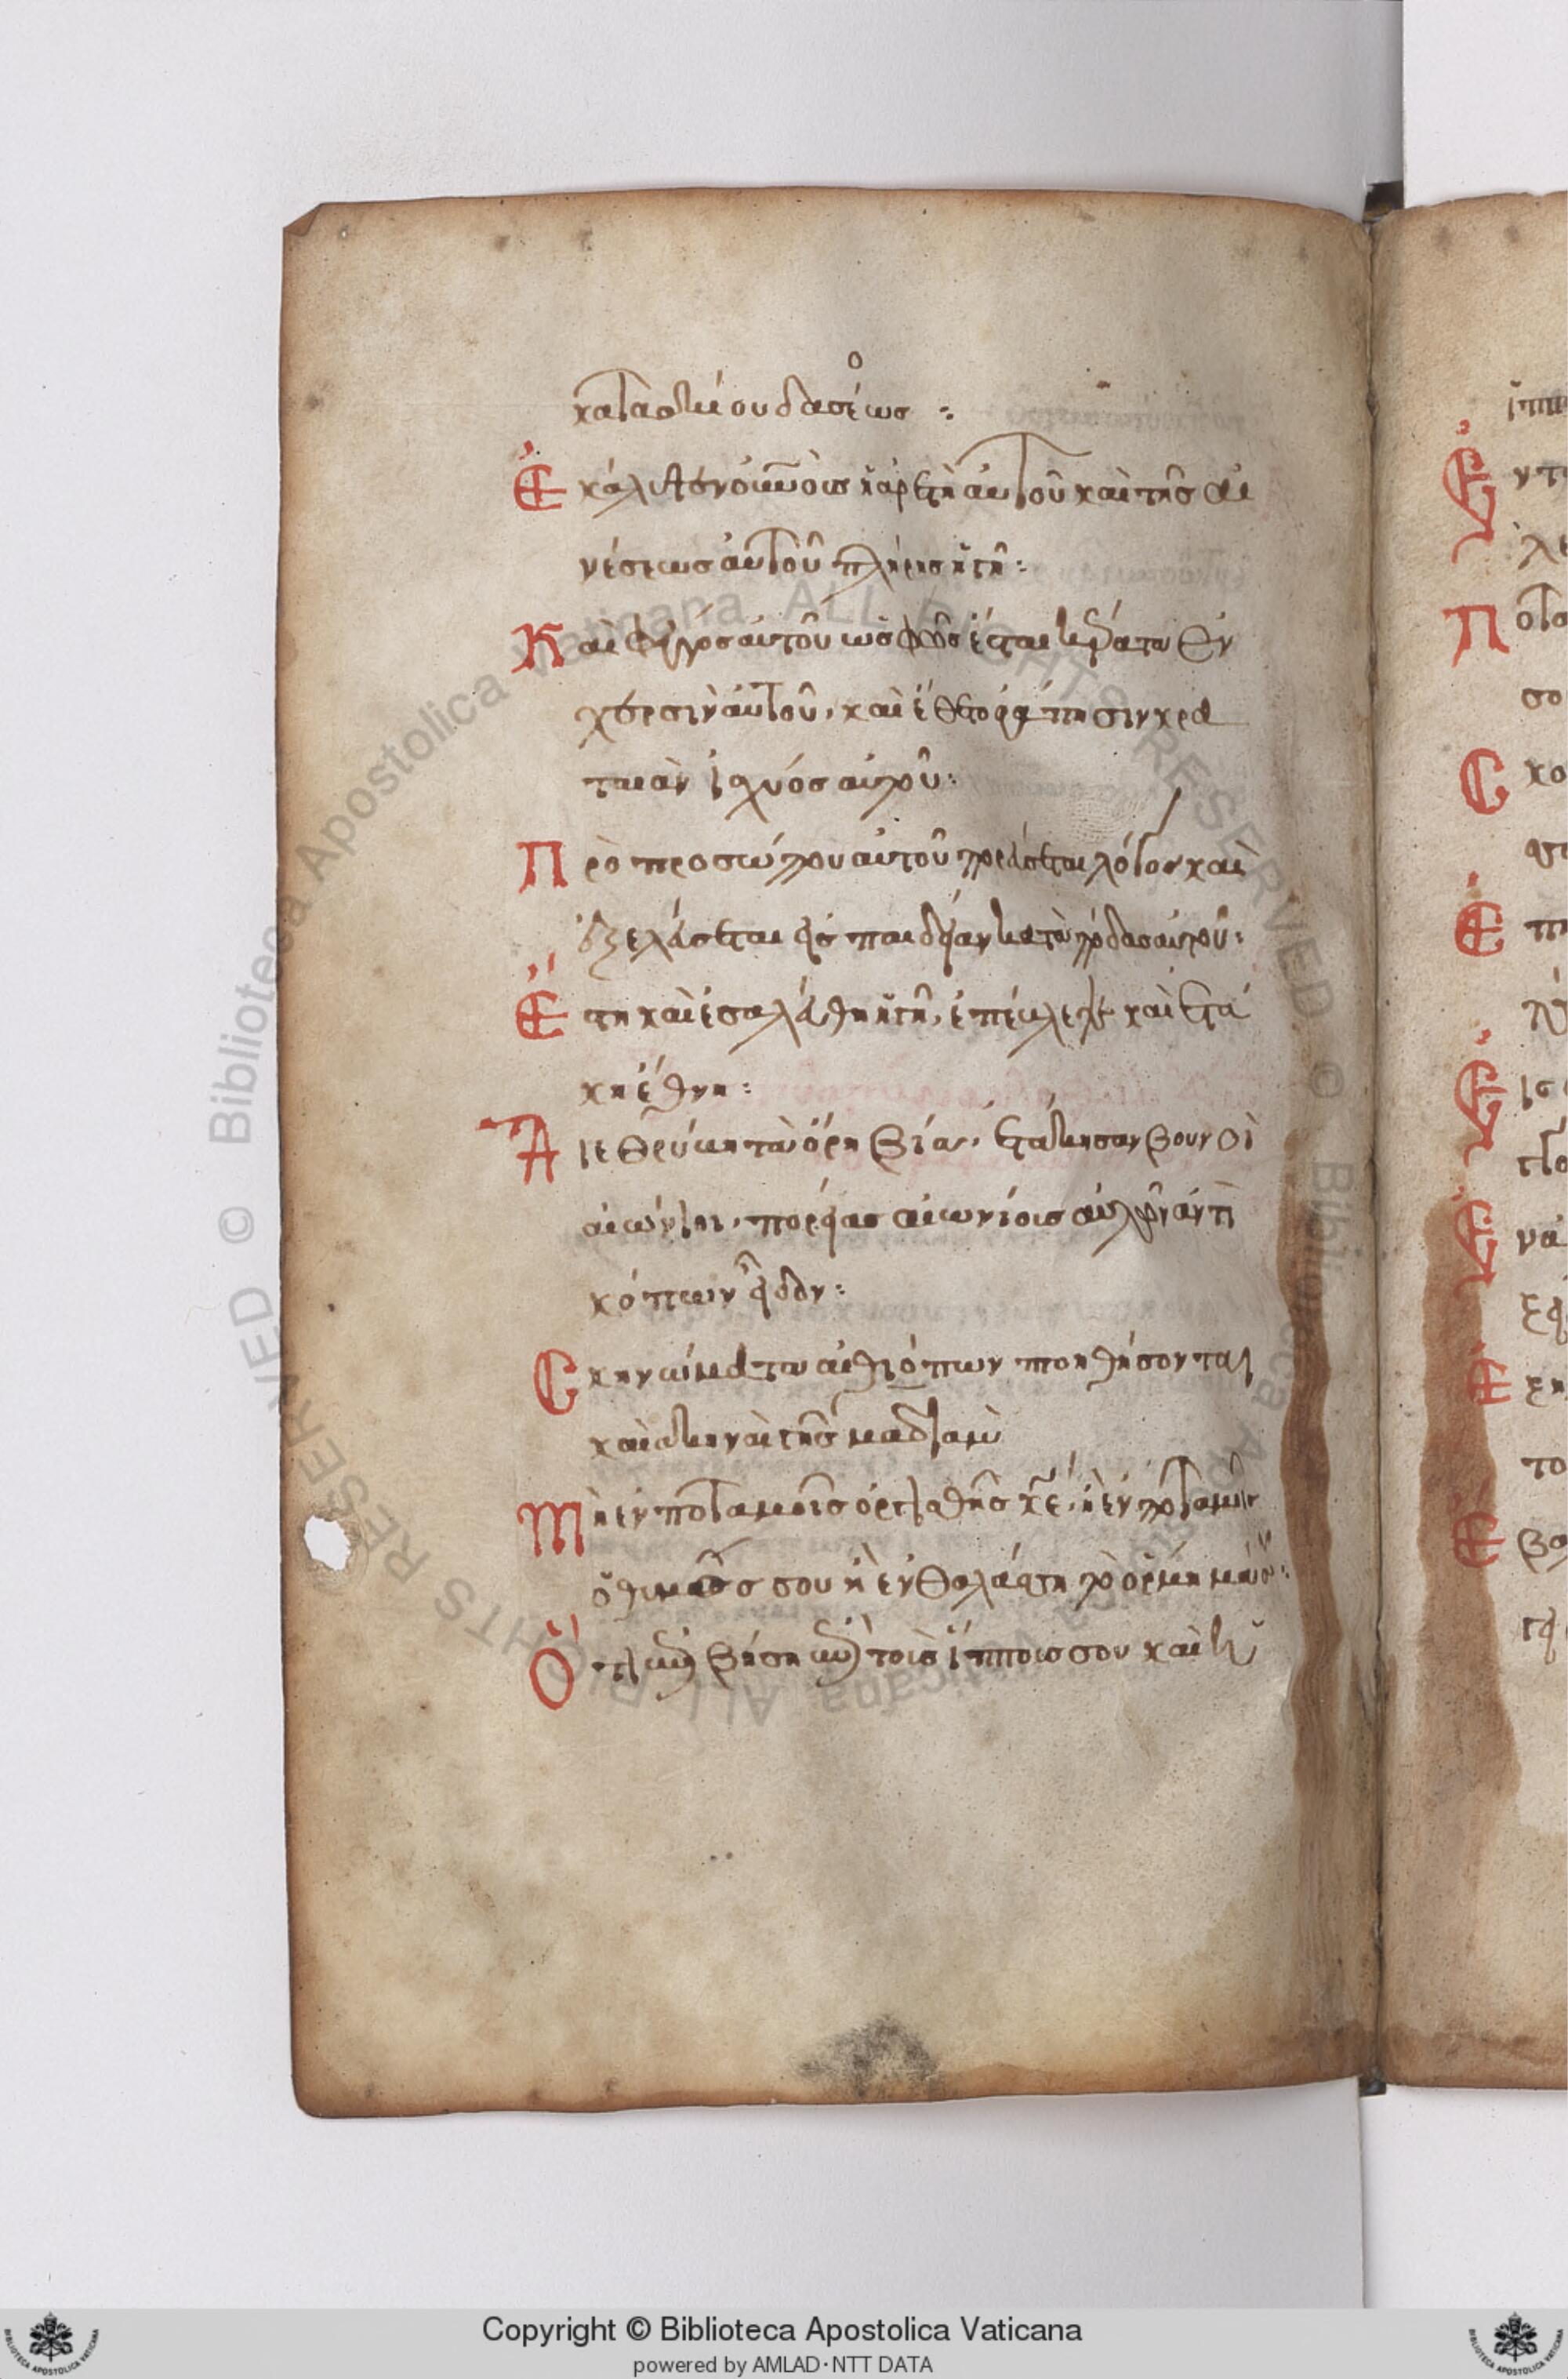 κατασκίου δασέως :
Ἐκάλυψεν οὐνοὺσ ἡ ἀρετὴ αὐτοῦ καὶ τῆσ αἰ
νέσεωσ αὐτοῦ πλήρησ ἡ γῆ :
Καὶ φέγγοσ αὐτοῦ ὡσ φῶσ ἔσται κέρατα ἐν
χερσὶν αὐτοῦ, καὶ ἔθετο ἀγάπησιν κρα
ταιὰν ἰσχύοσ αὐτοῦ :
Πρὸ προσώπου αὐτοῦ πορεύσεται λόγοσ καὶ
ἐξελεύσεται εἰσ παιδείαν κατὰ πόδασ αὐτοῦ :
Ἔστη καὶ ἐσαλεύθη ἡ γῆ, ἐπέβλεψε καὶ ἐτά
κη ἔθνη :
Διεθρύβη τὰ ὄρη βία, ἐτάκησαν βουνοὶ
αἰώνιοι, πορείασ αἰωνίουσ αὐτῶν ἀντὶ
κόπων εἶδον :
Σκηνώματα αἰθιόπων πτοηθήσονται
καὶ αἱ σκηναὶ γῆσ μαδιάμ
Μὴ ἐν ποταμοῖσ ὀργισθῇσ κε, ἢ ἐν ποταμοῖσ
ὁ θυμόσ σου ἢ ἐν θαλάσση τὸ ὅρμημά σου :
Ὅτι ἐπιβήση ἐπὶ τοὺσ ἵππουσ σου καὶ ἡ
Copyright © Biblioteca Apostolica Vaticana
powered by AMLAD・NTT DATA